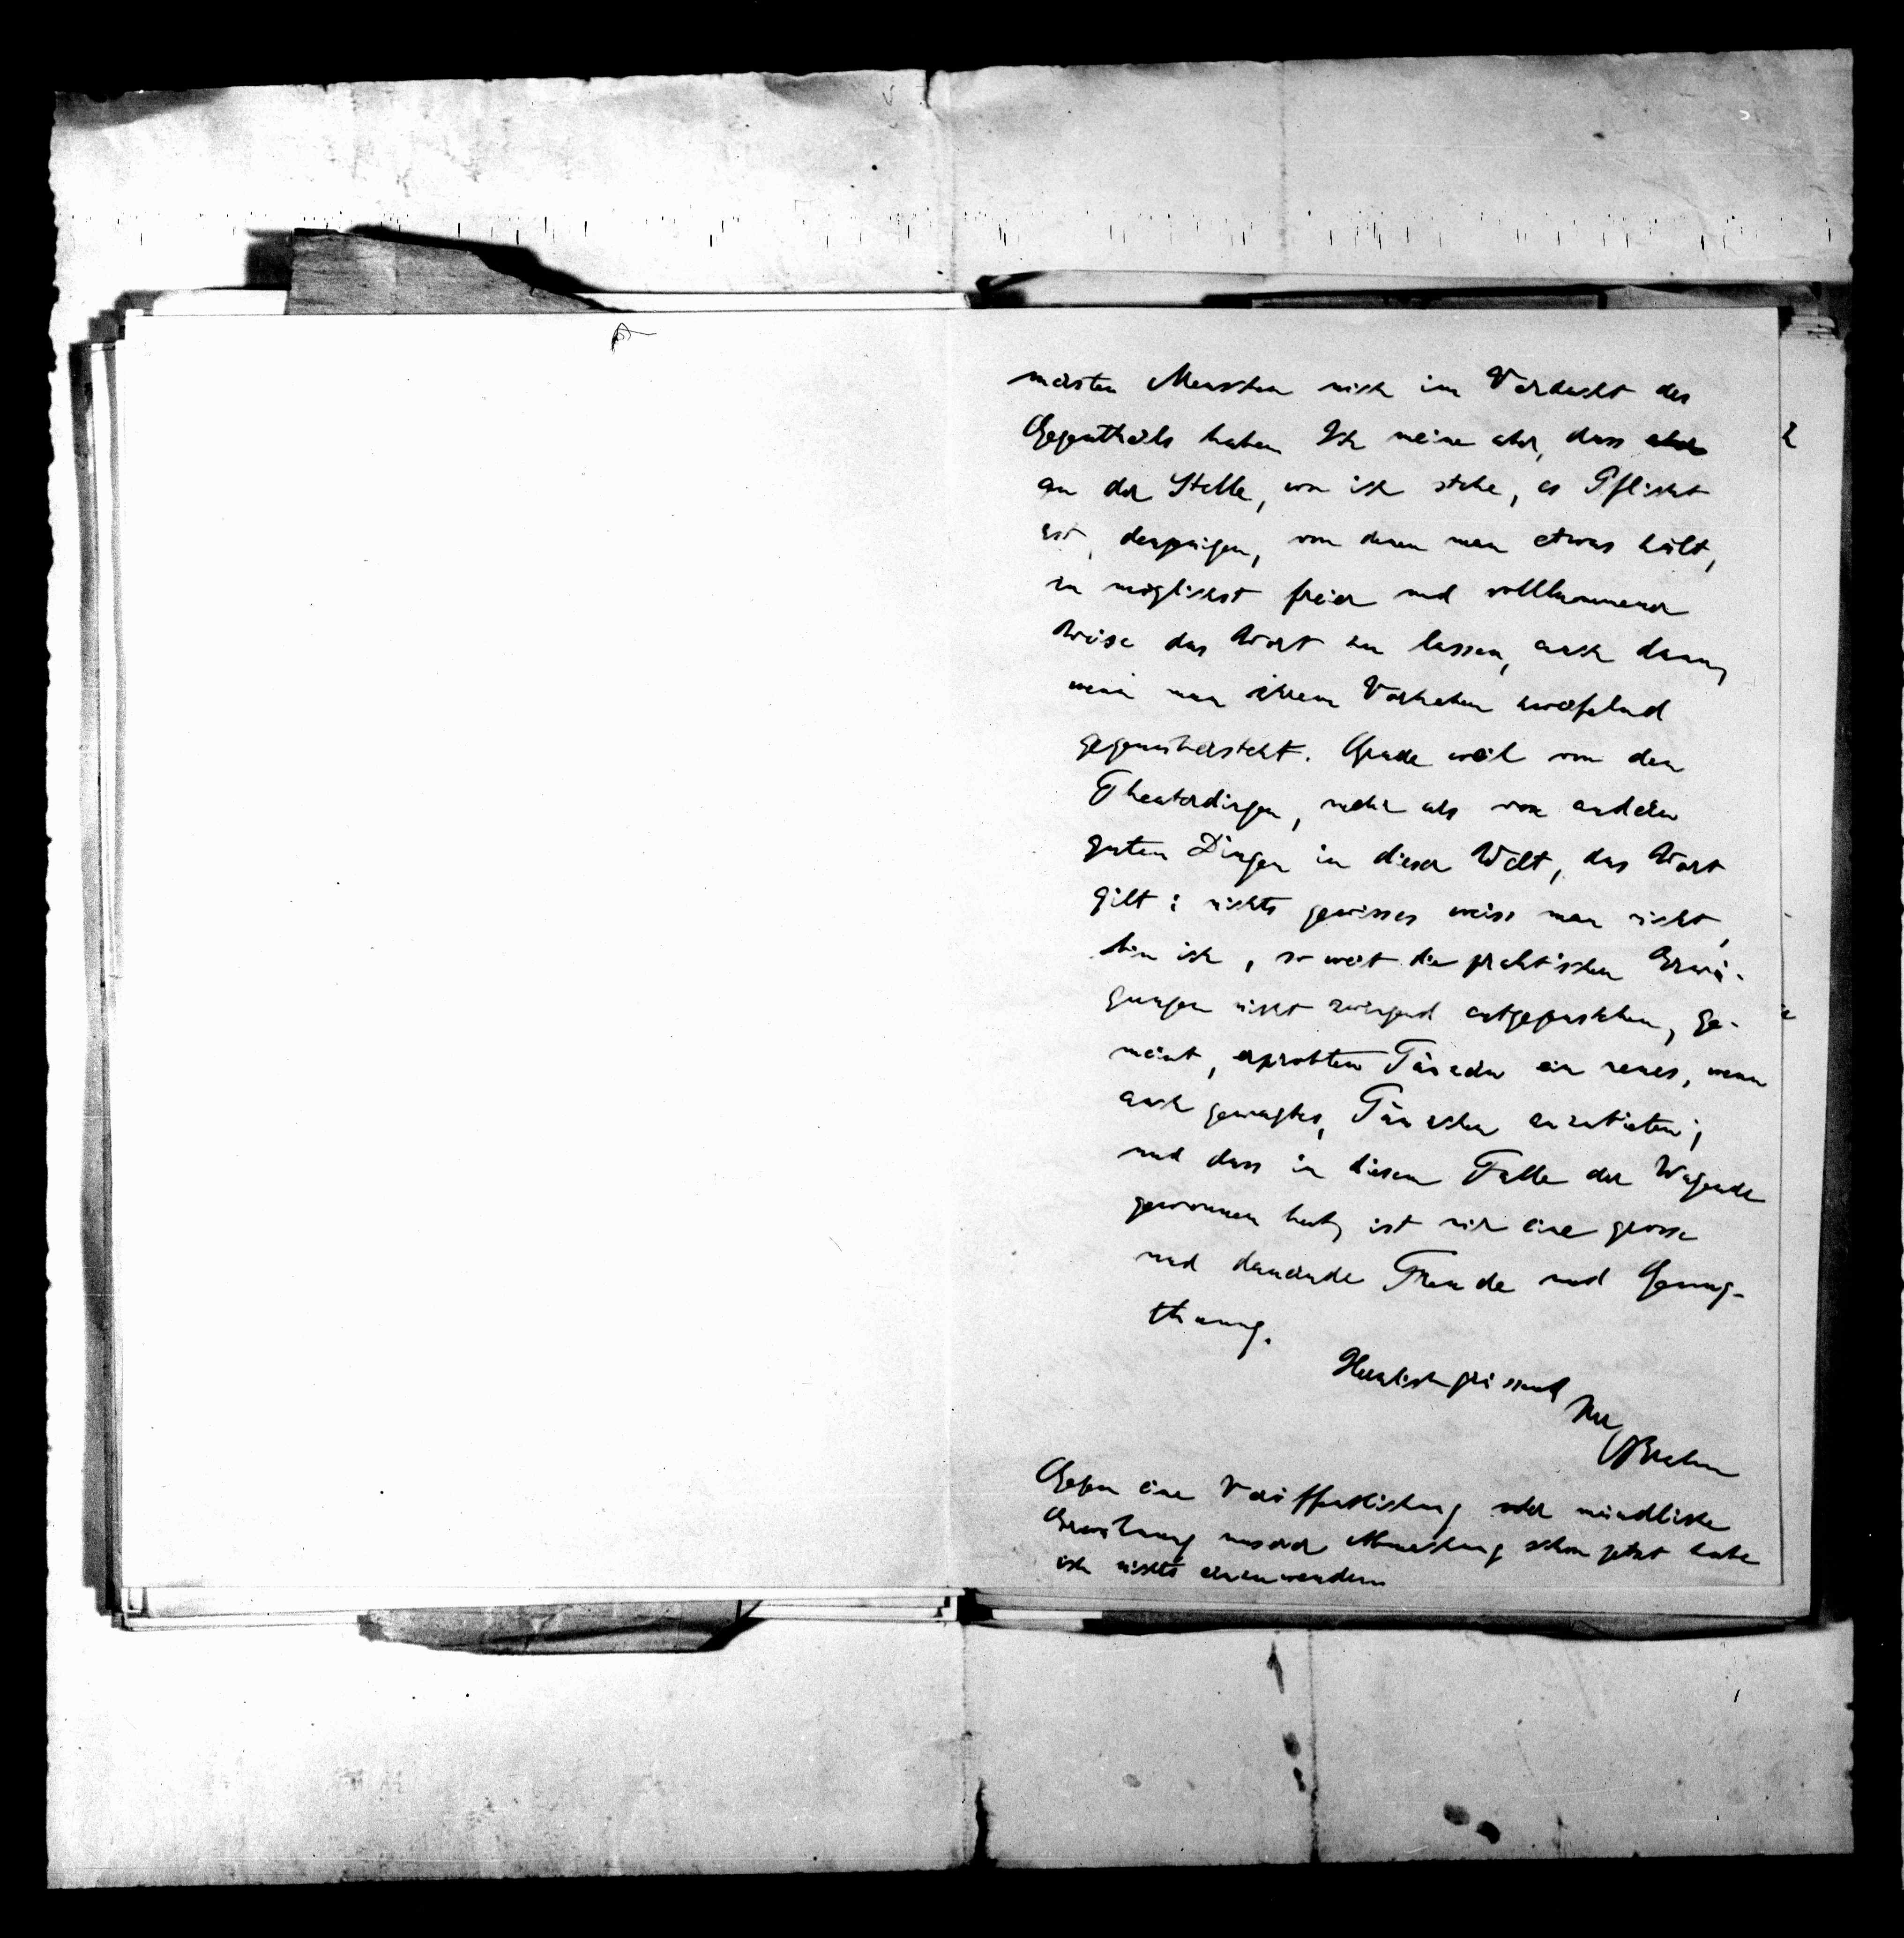 meisten Menschen mich im Verdacht des
Gegentheils haben. Ich meine aber, dass
an der Stelle, wo ich stehe, es Pflicht
ist, denjenigen, von denen man etwas hält,
in möglichst freier und vollkommener
Weise das Wort zu lassen, auch dann,
wenn man ihrem Vorhaben zweifelnd
gegenübersteht. Grade weil von den
Theaterdingen, mehr als von anderen
guten Dingen in dieser Welt, das Wort
gilt: nichts gewisses weiss man nicht,
bin ich, so weit die praktischen Erwä-
gungen nicht zwingend entgegenstehen, ge-
neigt, erprobten Tänzern ein neues, wenn
auch gewagtes, Tänzchen anzubieten;
und dass in diesem Falle der Wagende
gewonnen hat, ist mir eine grosse
und dauernde Freude und Genug-
thuung.
Herzlich grüssend
Ihr
OBrahm
Gegen eine Veröffentlichung oder mündliche
Erwähnung unserer Abmachung schon jetzt habe
ich nichts einzuwenden